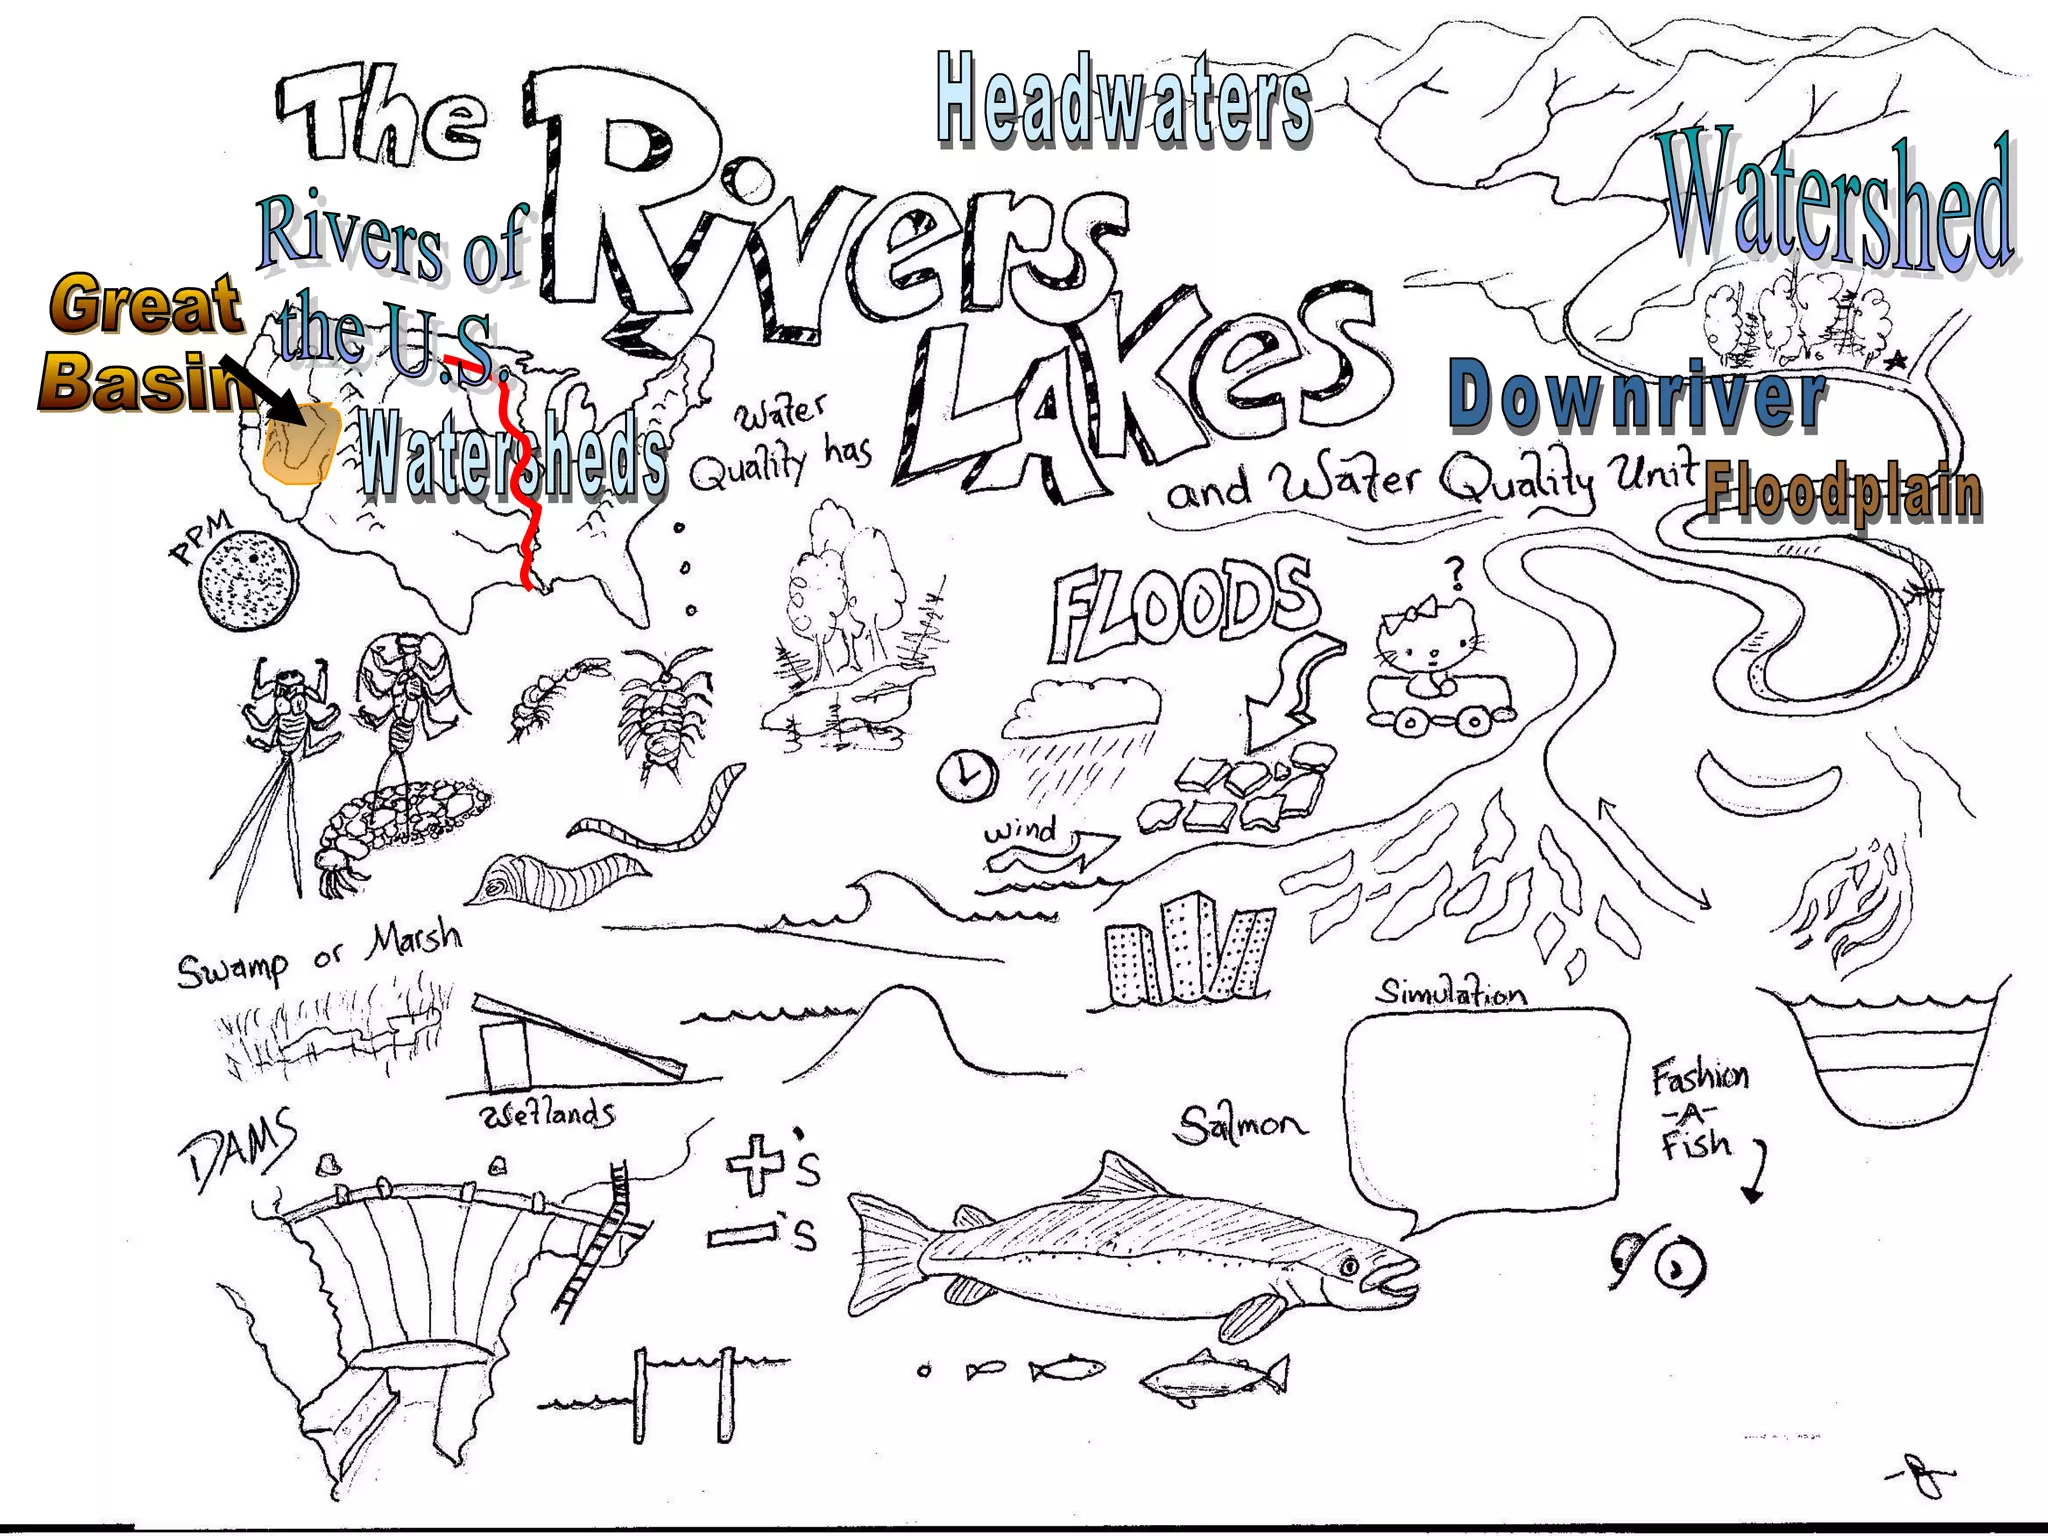 The Rivers
LAKes
and Water Quality Unit
Headwaters
Watershed
Rivers of
the U.S.
Great
Basin
Watersheds
Water
Quality has
Downriver
Floodplain
PPM
FLOODS
?
wind
Swamp or Marsh
Wetlands
Simulation
Fashion
-A-
Fish
DAMS
+'s
-'s
Salmon